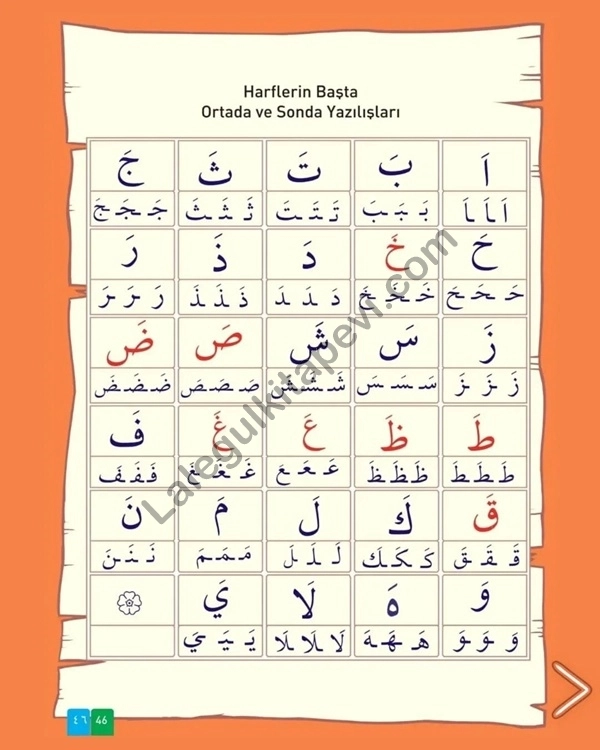 Harflerin Başta
Ortada ve Sonda Yazılışları
اَ بَ تَ ثَ جَ
اَ ـَا ـَا بَـ ـبَـ ـبَ تَـ ـتَـ ـتَ ثَـ ـثَـ ـثَ جَـ ـجَـ ـجَ
حَ خَ دَ ذَ رَ
حَـ ـحَـ ـحَ خَـ ـخَـ ـخَ دَ ـدَ ـدَ ذَ ـذَ ـذَ رَ ـرَ ـرَ
زَ سَ شَ صَ ضَ
زَ ـزَ ـزَ سَـ ـسَـ ـسَ شَـ ـشَـ ـشَ صَـ ـصَـ ـصَ ضَـ ـضَـ ـضَ
طَ ظَ عَ غَ فَ
طَـ ـطَـ ـطَ ظَـ ـظَـ ـظَ عَـ ـعَـ ـعَ غَـ ـغَـ ـغَ فَـ ـفَـ ـفَ
قَ كَ لَ مَ نَ
قَـ ـقَـ ـقَ كَـ ـكَـ ـكَ لَـ ـلَـ ـلَ مَـ ـمَـ ـمَ نَـ ـنَـ ـنَ
وَ هَ لَا يَ
وَ ـوَ ـوَ هَـ ـهَـ ـهَ لَا ـلَا ـلَا يَـ ـيَـ ـيَ
٤٦ 46
Lalegulkitapevi.com